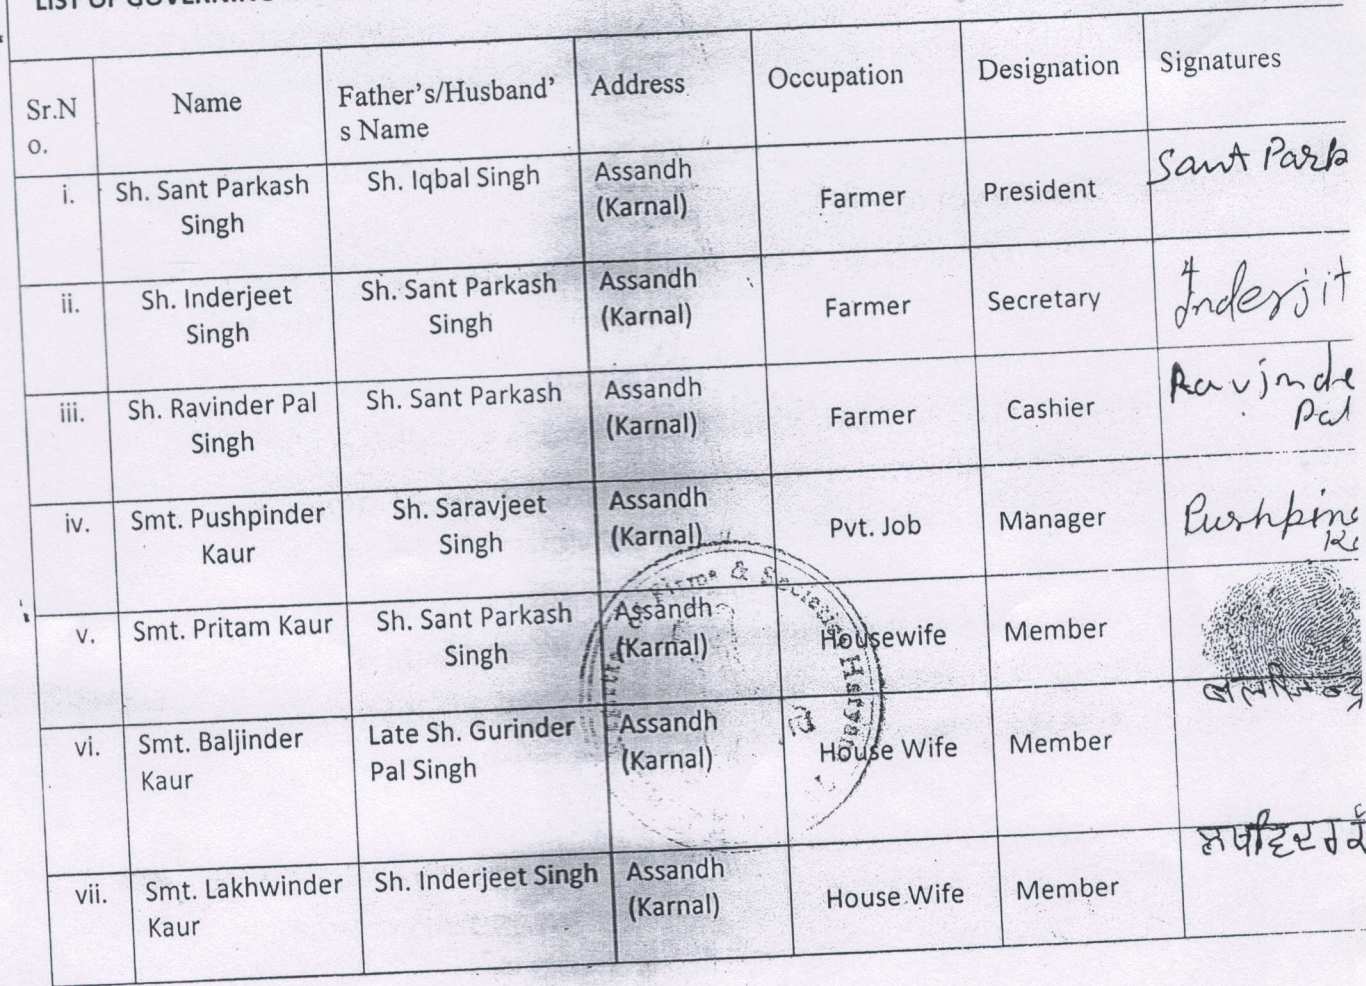 LIST OF GOVERNING
Sr.N
o.
Name
Father's/Husband'
s Name
Address
Occupation
Designation
Signatures
i.
Sh. Sant Parkash
Singh
Sh. Iqbal Singh
Assandh
(Karnal)
Farmer
President
Sant Park
ii.
Sh. Inderjeet
Singh
Sh. Sant Parkash
Singh
Assandh
(Karnal)
Farmer
Secretary
Inderjit
iii.
Sh. Ravinder Pal
Singh
Sh. Sant Parkash
Assandh
(Karnal)
Farmer
Cashier
Ravinde
Pal
iv.
Smt. Pushpinder
Kaur
Sh. Saravjeet
Singh
Assandh
(Karnal)
Pvt. Job
Manager
Pushpin
v.
Smt. Pritam Kaur
Sh. Sant Parkash
Singh
Assandh
(Karnal)
Housewife
Member
Firms & Societies Haryana
vi.
Smt. Baljinder
Kaur
Late Sh. Gurinder
Pal Singh
Assandh
(Karnal)
House Wife
Member
vii.
Smt. Lakhwinder
Kaur
Sh. Inderjeet Singh
Assandh
(Karnal)
House Wife
Member